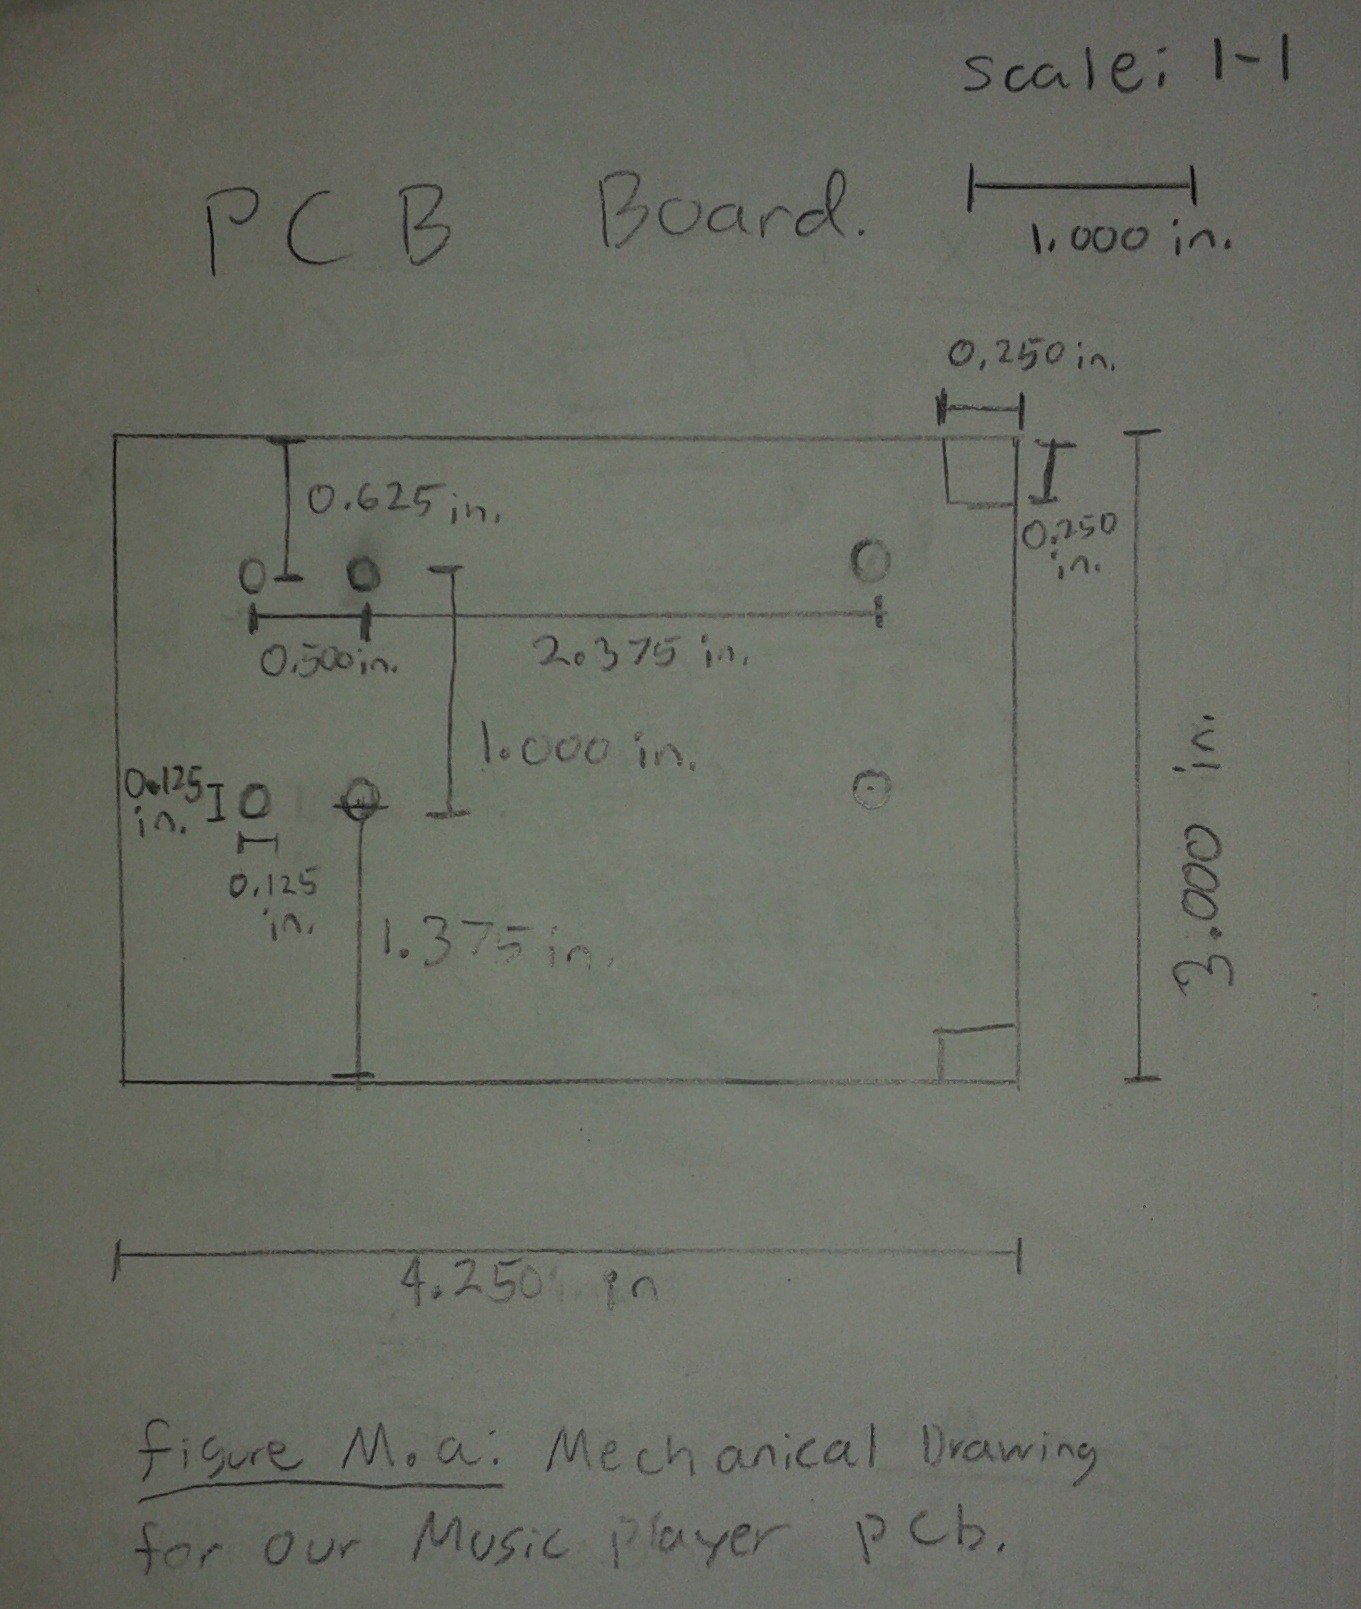 scale: 1-1
PCB Board.
1.000 in.
0.250 in.
0.625 in.
0.250
in.
0.500 in.
2.375 in.
1.000 in.
0.125
in.
0.125
in.
1.375 in.
3.000 in.
4.250 in
figure M.a: Mechanical Drawing
for our Music player pcb.